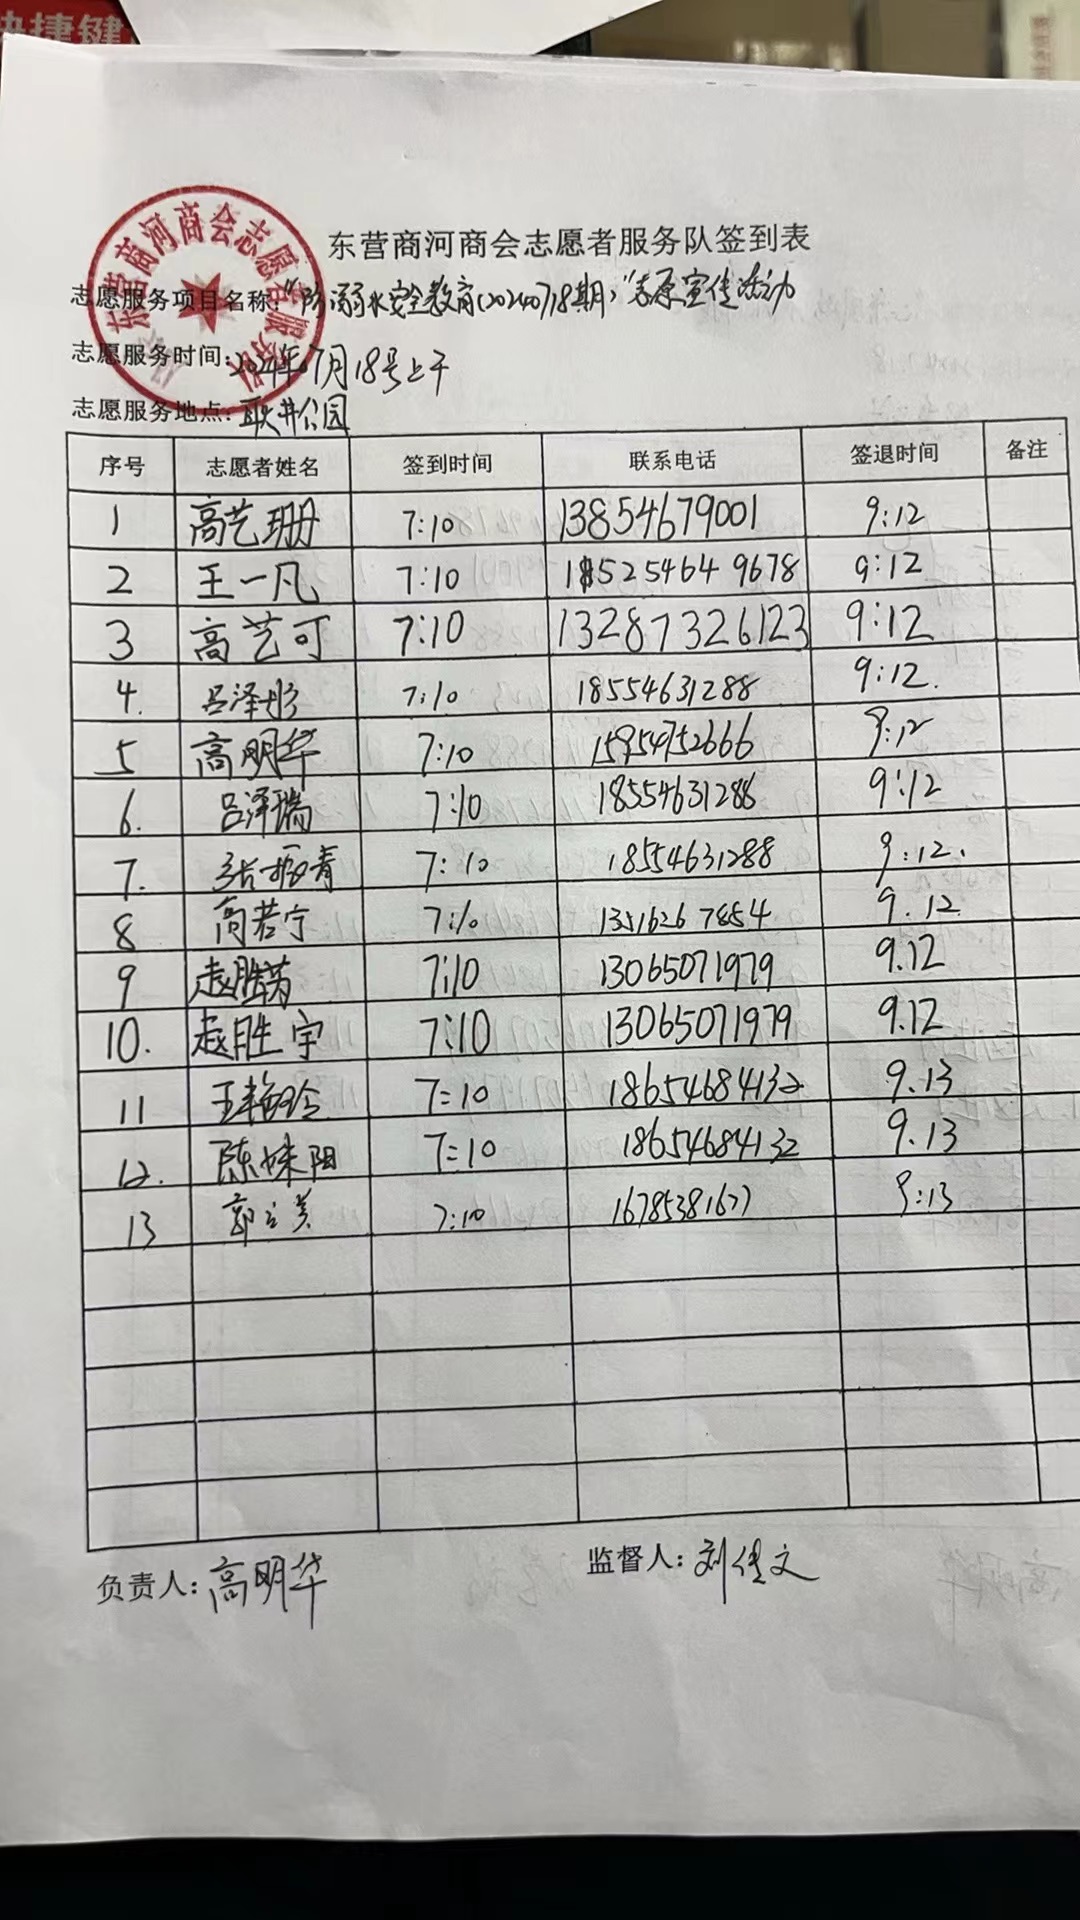 快捷键
东营商河商会志愿者服务队
东营商河商会志愿者服务队签到表
志愿服务项目名称:“防溺水安全教育(20240718期)”志愿宣传活动
志愿服务时间:2024年07月18号上午
志愿服务地点:耿井公园
序号 志愿者姓名 签到时间 联系电话 签退时间 备注
1 高艺珊 7:10 13854679001 9:12
2 王一凡 7:10 18525464 9678 9:12
3 高艺可 7:10 13287326123 9:12
4. 吕泽彤 7:10 18554631288 9:12.
5 高明华 7:10 15954752666 9:12
6. 吕泽瑞 7:10 18554631288 9:12
7. 张青 7:10 18554631288 9:12.
8 高若宁 7:10 13516267854 9.12
9 赵胜 7:10 13065071979 9.12
10. 赵胜宇 7:10 13065071979 9.12
11 王艳玲 7=10 18654684132 9.13
12. 陈姝阳 7=10 18654684132 9.13
13 郭美 7:10 16785381677 9:13
负责人:高明华 监督人:刘佳文